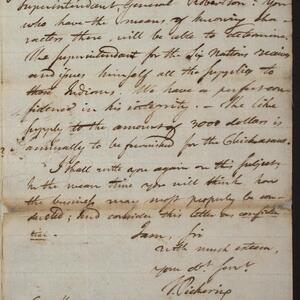 Superintendant, General Robertson? You
who have the means of knowing cha-
racters there, will be able to determine.
The superintendant for the Six Nations receives
and issues himself all the supplies to
those Indians. We have a perfect con-
fidence in his integrity. — The like
supply to the amount of 3000 dollars is
annually to be furnished for the Chickasaws.
I shall write you again on this subject,
In the mean time you will think how
the business may most properly be con-
ducted; and consider this letter as confiden-
tial.
I am, Sir
with much esteem,
your obt. Servt.
T. Pickering